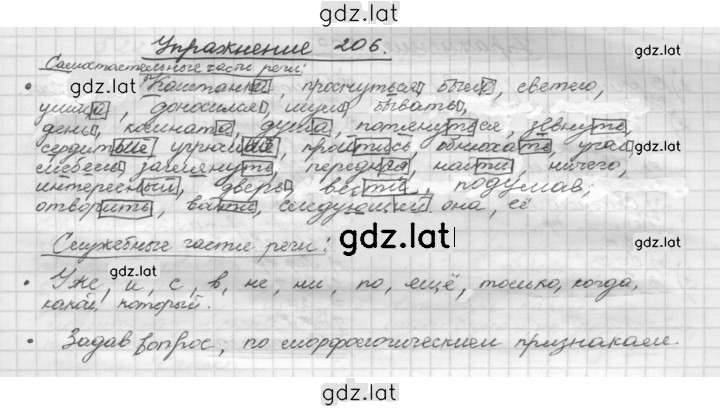 gdz.lat
Упражнение 206.
gdz.lat
Самостоятельные части речи:
gdz.lat
Каштанка, проснуться, было, светло,
улица, доносился, шум, бывать,
день, комната, душа, потянуться, зевнуть,
сердитые, угрюмые, пройтись, обнюхать, угол
мебель, заглянуть, передняя, найти, ничего,
интересный, дверь, вести, подумав,
отворить, войти, следующей она, её
Служебные части речи:
gdz.lat
gdz.lat
Уже, и, с, в, не, ни, по, ещё, только, когда,
какой, который.
Задав вопрос, по морфологическим признакам.
gdz.lat